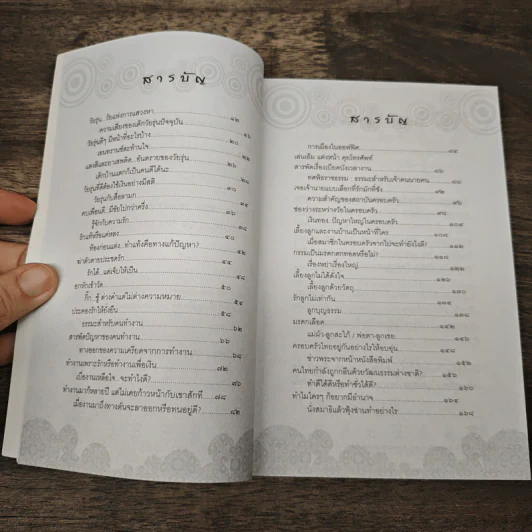 สารบัญ
วัยรุ่น...วัยแห่งการแสวงหา
ความเสี่ยงของเด็กวัยรุ่นปัจจุบัน ๑๒
วัยรุ่นดีๆ มีหน้าที่อะไรบ้าง ๑๖
เอนทรานซ์สะท้านใจ ๒๐
แสงสีและยาเสพติด..อันตรายของวัยรุ่น
เด็กบ้านแตกก็เป็นคนดีได้นะ ๒๖
วัยรุ่นที่ดีต้องใช้เงินอย่างมีสติ ๒๘
วัยรุ่นกับสื่อลามก ๓๐
คบเพื่อนดี..มีชัยไปกว่าครึ่ง
รู้จักกับความรัก ๓๖
รักแท้หรือแค่หลง ๓๘
ท้องก่อนแต่ง..ทำแท้งคือทางแก้ปัญหา?
ฆ่าตัวตายประชดรัก ๔๔
รักได้..แต่เจ็บให้เป็น ๔๘
อกหักเข้าวัด ๕๐
กิ๊ก..ชู้ ต่างคำแต่ไม่ต่างความหมาย ๕๔
ประคองรักให้ยั่งยืน ๕๘
ธรรมะสำหรับคนทำงาน ๖๒
สารพัดปัญหาของคนทำงาน ๖๔
ทางออกของความเครียดจากการทำงาน ๖๘
ทำงานเพราะรักหรือทำงานเพื่อเงิน ๗๒
เบื่องานเหลือใจ..จะทำไงดี? ๗๖
ทำงานมาก็หลายปี แต่ไม่เคยก้าวหน้ากับเขาสักที ๗๘
เมื่องานมาถึงทางตันจะลาออกหรือทนอยู่ดี? ๘๒
สารบัญ
การเมืองในออฟฟิศ
เส้นเอ็น แต่งหน้า คุยโทรศัพท์
สารพัดเรื่องเบียดบังเวลางาน
ทศพิธราชธรรม : ธรรมะสำหรับเจ้าคนนายคน
จอเจ้านายแบบเลือกที่รักมักที่ชัง
ความสำคัญของสถาบันครอบครัว
ช่องว่างระหว่างวัยในครอบครัว
เงินทอง..ปัญหาใหญ่ในครอบครัว ๑๐๘
เลี้ยงลูกและงานบ้านเป็นหน้าที่ใคร
เมื่อสมาชิกในครอบครัวจากไปจะทำยังไงดี?
กรรมเป็นมรดกตกทอดหรือไม่?
เรื่องหย่าเรื่องใหญ่
เลี้ยงลูกไม่ได้ดั่งใจ
เลี้ยงลูกด้วยวัตถุ
รักลูกไม่เท่ากัน
ลูกบุญธรรม
มรดกเลือด
แม่ผัว-ลูกสะใภ้ / พ่อตา-ลูกเขย
ครอบครัวไทยอยู่กันอย่างไรให้อบอุ่น
ข่าวพระจากหน้าหนังสือพิมพ์
คนไทยกำลังถูกกลืนด้วยวัฒนธรรมต่างชาติ?
ทำดีได้ดีหรือทำชั่วได้ดี? ๑๖๐
ทำไมใครๆ ก็อยากมีอำนาจ ๑๖๔
นั่งสมาธิแล้วฟุ้งซ่านทำอย่างไร ๑๖๘